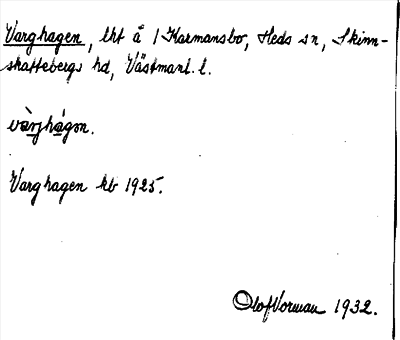 Varghagen, lht å 1 Karmansbo, Heds sn, Skinn-
skattebergs hd, Västmanl. l.
vàrjhágɒn.
Varghagen kb 1925.
Olof Vorman 1932.